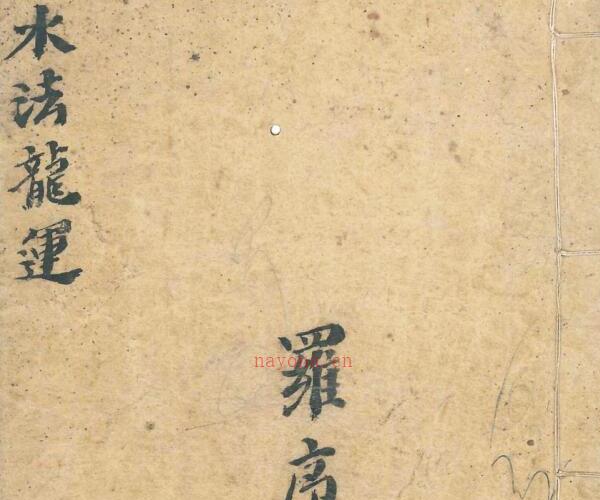 羅高
水法龍運
nayona.cn